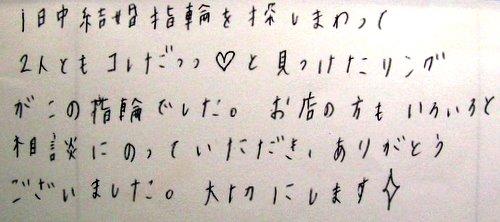 1日中結婚指輪を探しまわって
2人ともコレだっっ♡と見つけたリング
がこの指輪でした。お店の方もいろいろと
相談にのっていただき、ありがとう
ございました。大切にします✧